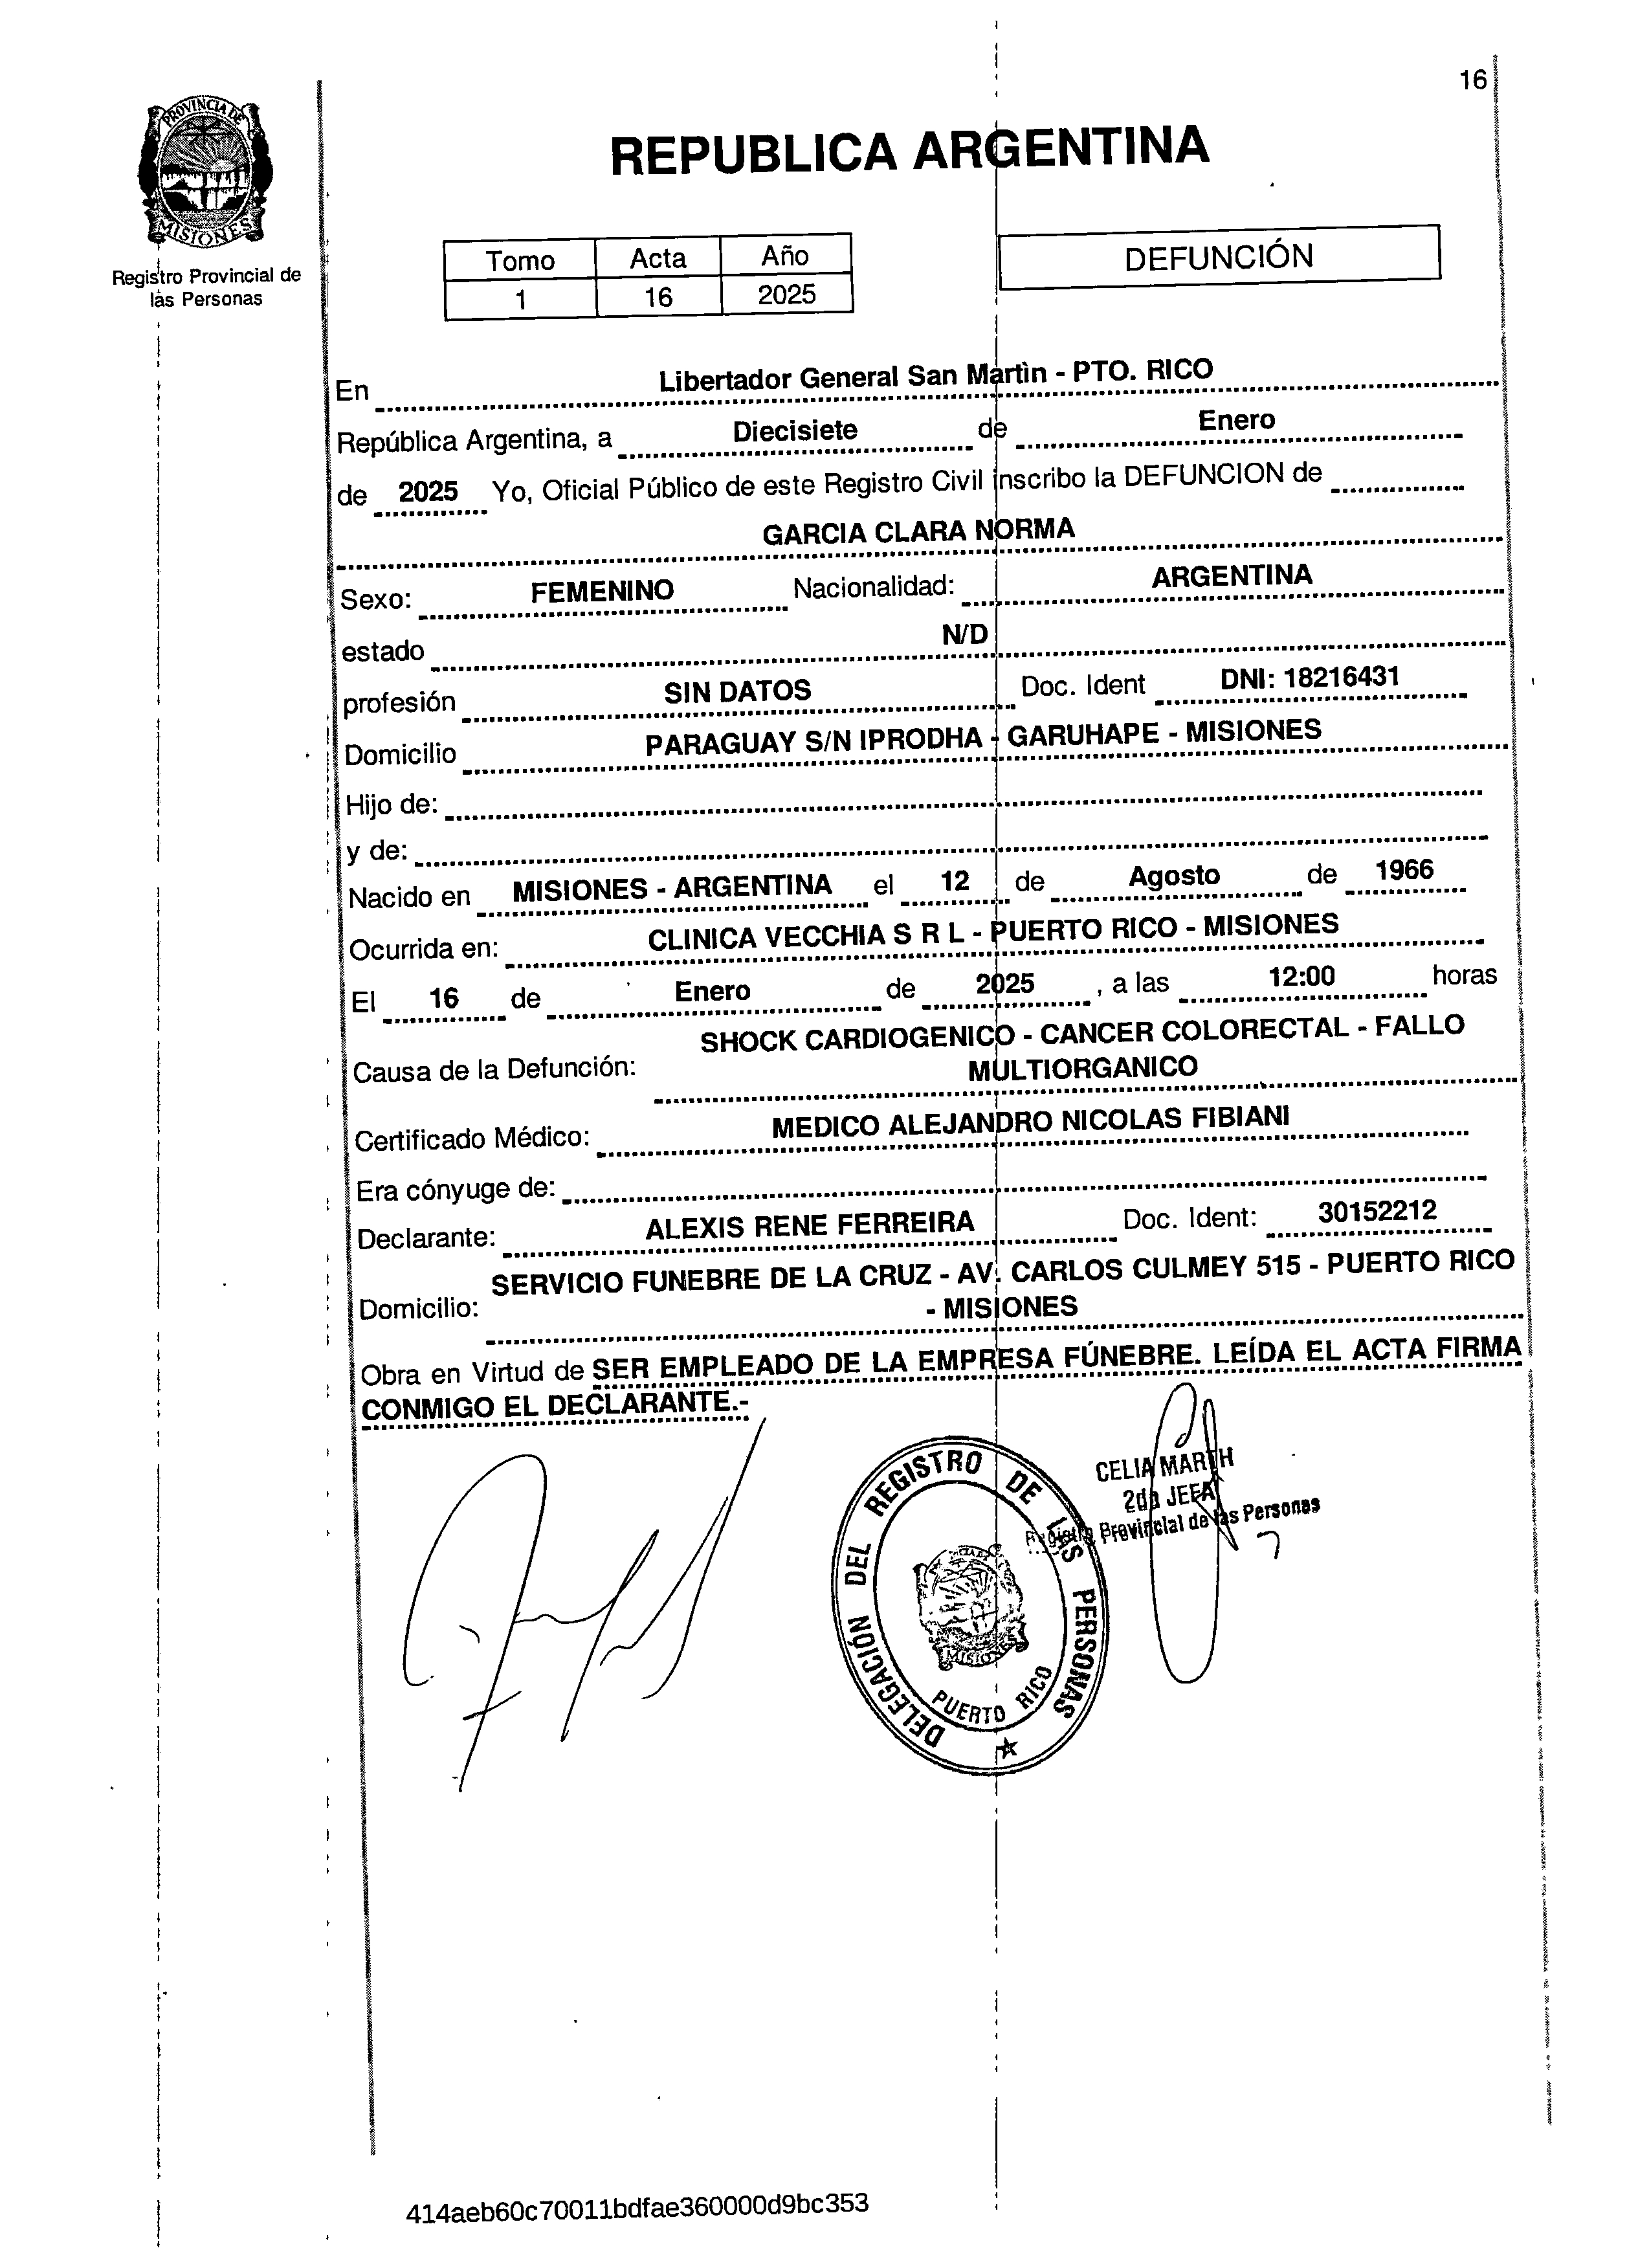 16
PROVINCIA DE
MISIONES
Registro Provincial de
las Personas
REPUBLICA ARGENTINA
Tomo Acta Año
1 16 2025
DEFUNCIÓN
En Libertador General San Martìn - PTO. RICO
República Argentina, a Diecisiete de Enero
de 2025 Yo, Oficial Público de este Registro Civil inscribo la DEFUNCION de
GARCIA CLARA NORMA
Sexo: FEMENINO Nacionalidad: ARGENTINA
estado N/D
profesión SIN DATOS Doc. Ident DNI: 18216431
Domicilio PARAGUAY S/N IPRODHA - GARUHAPE - MISIONES
Hijo de:
y de:
Nacido en MISIONES - ARGENTINA el 12 de Agosto de 1966
Ocurrida en: CLINICA VECCHIA S R L - PUERTO RICO - MISIONES
El 16 de Enero de 2025 , a las 12:00 horas
SHOCK CARDIOGENICO - CANCER COLORECTAL - FALLO
Causa de la Defunción: MULTIORGANICO
Certificado Médico: MEDICO ALEJANDRO NICOLAS FIBIANI
Era cónyuge de:
Declarante: ALEXIS RENE FERREIRA Doc. Ident: 30152212
SERVICIO FUNEBRE DE LA CRUZ - AV. CARLOS CULMEY 515 - PUERTO RICO
Domicilio: - MISIONES
Obra en Virtud de SER EMPLEADO DE LA EMPRESA FÚNEBRE. LEÍDA EL ACTA FIRMA
CONMIGO EL DECLARANTE.-
CELIA MARTH
2da JEFA
Registro Provincial de las Personas
DELEGACIÓN DEL REGISTRO DE LAS PERSONAS
MISIONES
PUERTO RICO
414aeb60c70011bdfae360000d9bc353